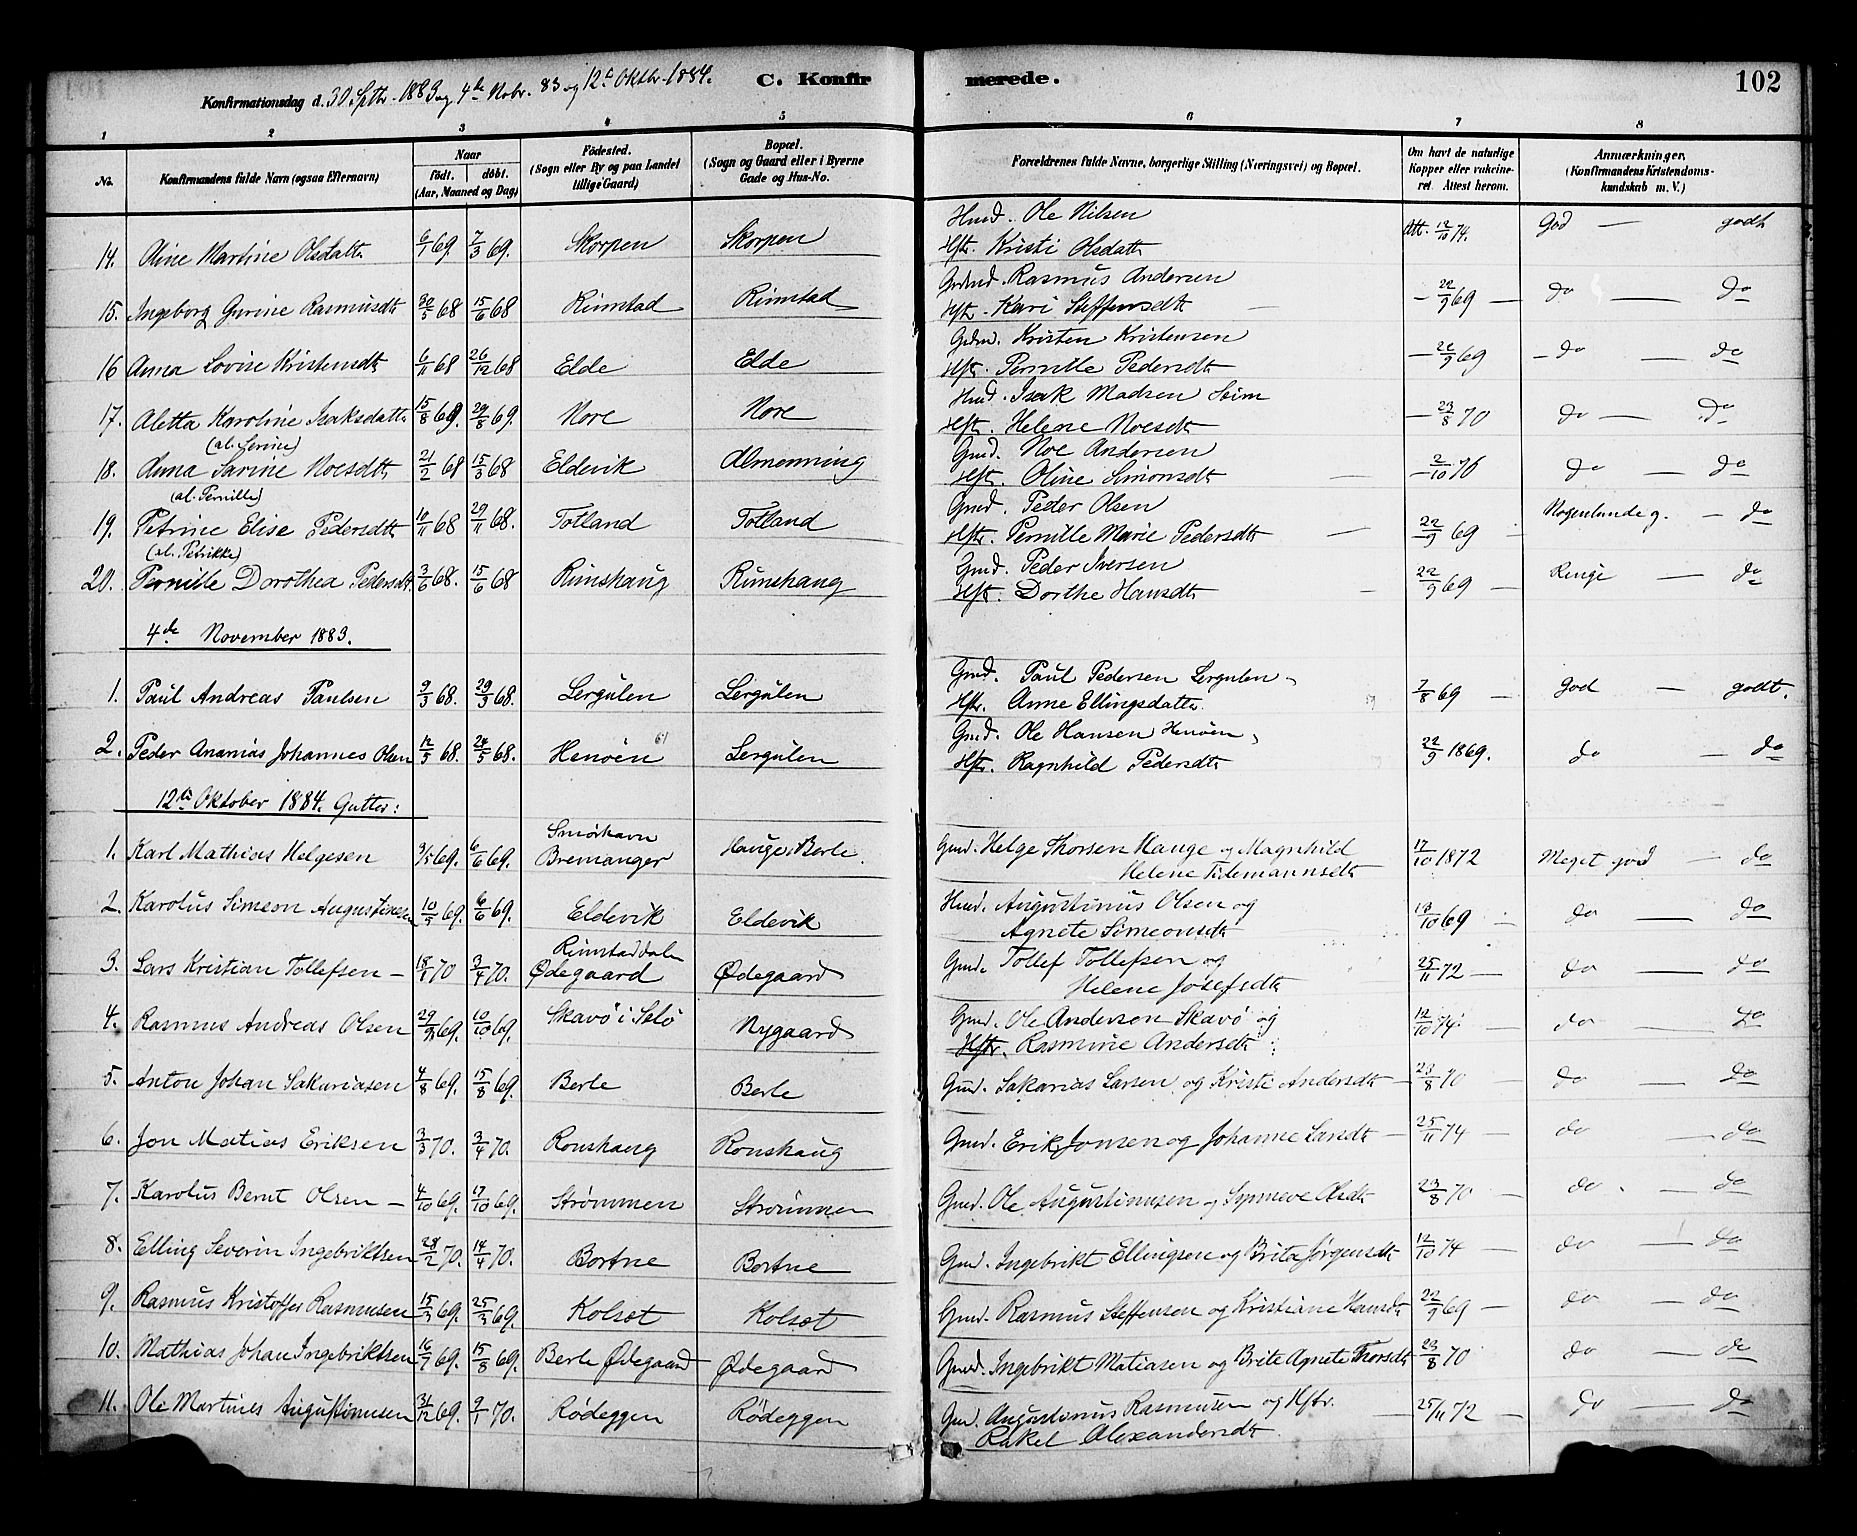 Konfirmationsdag d. 30. Septbr. 1883 og 4de Novbr. 83 og 12te Oktbr. 1884. C. Konfirmerede. 102
1 2 3 4 5 6 7 8
No. Konfirmandens fulde Navn (ogsaa Efternavn) Naar født. døbt. (Aar, Maaned og Dag) Fødested. (Sogn eller By og paa Landet tillige Gaard) Bopæl. (Sogn og Gaard eller i Byerne Gade og Hus-No. Forældrenes fulde Navne, borgerlige Stilling (Næringsvei) og Bopæl. Om havt de naturlige Kopper eller vakcineret. Attest herom. Anmærkninger. (Konfirmandens Kristendomskundskab m. V.)
14. Oline Martine Olsdattr 6/1 69. 7/3 69. Skorpen Skorpen Hmd. Ole Nilsen Hstr. Kristi Olsdatt Att. 12/10 74. God — godt
15. Ingeborg Gurine Rasmusdt 30/5 68 15/6 68 Rimstad Rimstad Grdmd. Rasmus Andersen Hst. Kari Steffensdt — 22/9 69 — do — do
16 Anna Lovise Kristensdt 6/11 68 26/12 68 Elde Elde Grdmd. Kristen Kristensen Hstr. Pernille Pedersdt — 22/9 69 — do — do
17. Aletta Karoline Isaksdattr 15/8 69. 29/8 69. Nore Nore Hmd. Isak Madsen Hstr. Helene Noesdt — 23/8 70 do — do
(al. Serine)
18. Anna Sarine Noesdtr 21/2 68 15/3 68 Eldevik Almenning Gmd. Noe Andersen Hstr. Oline Simonsdt — 2/10 76 do — do
(al. Pernille)
19. Petrine Elise Pedersdtr 10/11 68 29/11 68. Totland Totland Gmd. Peder Olsen Hstr. Pernille Marie Pedersdt — 22/9 69 — Nogenlunde g. — do
(al. Petrikke)
20. Pernille Dorothea Pedersdt. 3/6 68. 15/6 68 Rimshaug Rimshaug Gmd. Peder Iversen Hstr. Dorthe Hansdt — 22/9 69 — Ringe — do
4de November 1883.
1. Paul Andreas Paulsen 9/3 68. 29/3 68. Lergulen Lergulen Gmd. Paul Pedersen Lergulen, Hstr. Anne Ellingsdattr. 7/8 69 — God — godt.
2. Peder Ananias Johannes Olsen 12/5 68. 24/5 68. Henøen Lergulen Gmd. Ole Hansen Henøen, Hstr. Ragnhild Pedersdt 22/9 1869. do — do
12te Oktober 1884. Gutter:
1. Karl Mathias Helgesen 3/5 69. 6/6 69. Smørhavn Bremanger Hauge, Berle. Gmd. Helge Thorsen Hauge og Magnhild Helene Tidemannsdt 17/10 1872 Meget god — do
2. Karolus Simeon Augustinusen 10/5 69. 6/6 69. Eldevik Eldevik Hmd. Augustinus Olsen og Agnete Simeonsdt 18/10 69 do — do
3. Lars Kristian Tollefsen — 18/1 70 3/4 70. Rimstaddalen Ødegaard Ødegaard Gmd. Tollef Tollefsen og Helene Josefsdt 25/11 72 — do — do
4. Rasmus Andreas Olsen 29/9 69. 10/10 69. Skavø i Selø Nygaard Gmd. Ole Andersen Skavø og Hstr. Rasmine Andersdt 12/10 74. do — do
5. Anton Johan Sakariasen 4/8 69. 15/8 69. Berle Berle Gmd. Sakarias Larsen og Kristi Andersdt — 23/8 70 do — do
6. Jon Matias Eriksen 3/3 70. 3/4 70. Ronshaug Ronshaug Gmd. Erik Jonsen og Johanne Larsdt — 25/11 74 do — do
7. Karolus Bernt Olsen — 4/10 69. 17/10 69. Strømmen Strømmen Gmd. Ole Augustinusen og Synneve Olsdt 23/8 70 — do. — do
8. Elling Severin Ingebriktsen 28/2 70. 14/4 70. Bortne Bortne Gmd. Ingebrikt Ellingsen og Brita Jørgensdt 12/10 74 — do — do
9. Rasmus Kristoffer Rasmusen 15/3 69. 25/3 69. Kolset Kolset Gmd. Rasmus Steffensen og Kristiane Hansdt 22/9 69 — do — do
10. Mathias Johan Ingebriktsen 16/7 69. 15/8 69. Berle Ødegaard Ødegaard Gmd. Ingebrikt Matiasen og Brite Agnete Thorsdt 23/8 70 do — do
11. Ole Martines Augustinusen 31/12 69. 9/1 70. Rødeggen Rødeggen Gmd. Augustinus Rasmusen og Hstr. Rakel Alexandersdt 25/11 72 — do — do